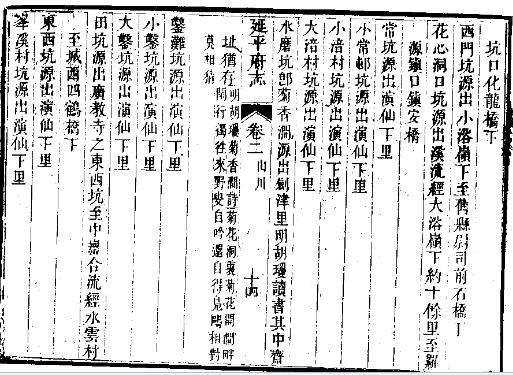 坑口化龍橋下
西門坑源出小涤嶺下至舊縣尉司前石橋下
花心洞口坑源出溪流經大涤嶺下約十餘里至羅
源鎮口鎮安橋
常坑源出演仙下里
小常邨坑源出演仙下里
小涪村坑源出演仙下里
大涪村坑源出演仙下里
水磨坑郎菊香澗源出劍津里明胡瓊讀書其中齋
延平府志 卷二 山川 十四
址猶存明胡瓊菊香澗詩菊花洞裏菊花開閒
閒行還往來野叟自吟還自得見鷗相對
莫相猜
鑿難坑源出演仙下里
小鑿坑源出演仙下里
大鑿坑源出演仙下里
田坑源出廣教寺之東西坑至中巖合流經水雲村
至城西四鶴橋下
東西坑源出演仙下里
峯溪村坑源出演仙下里